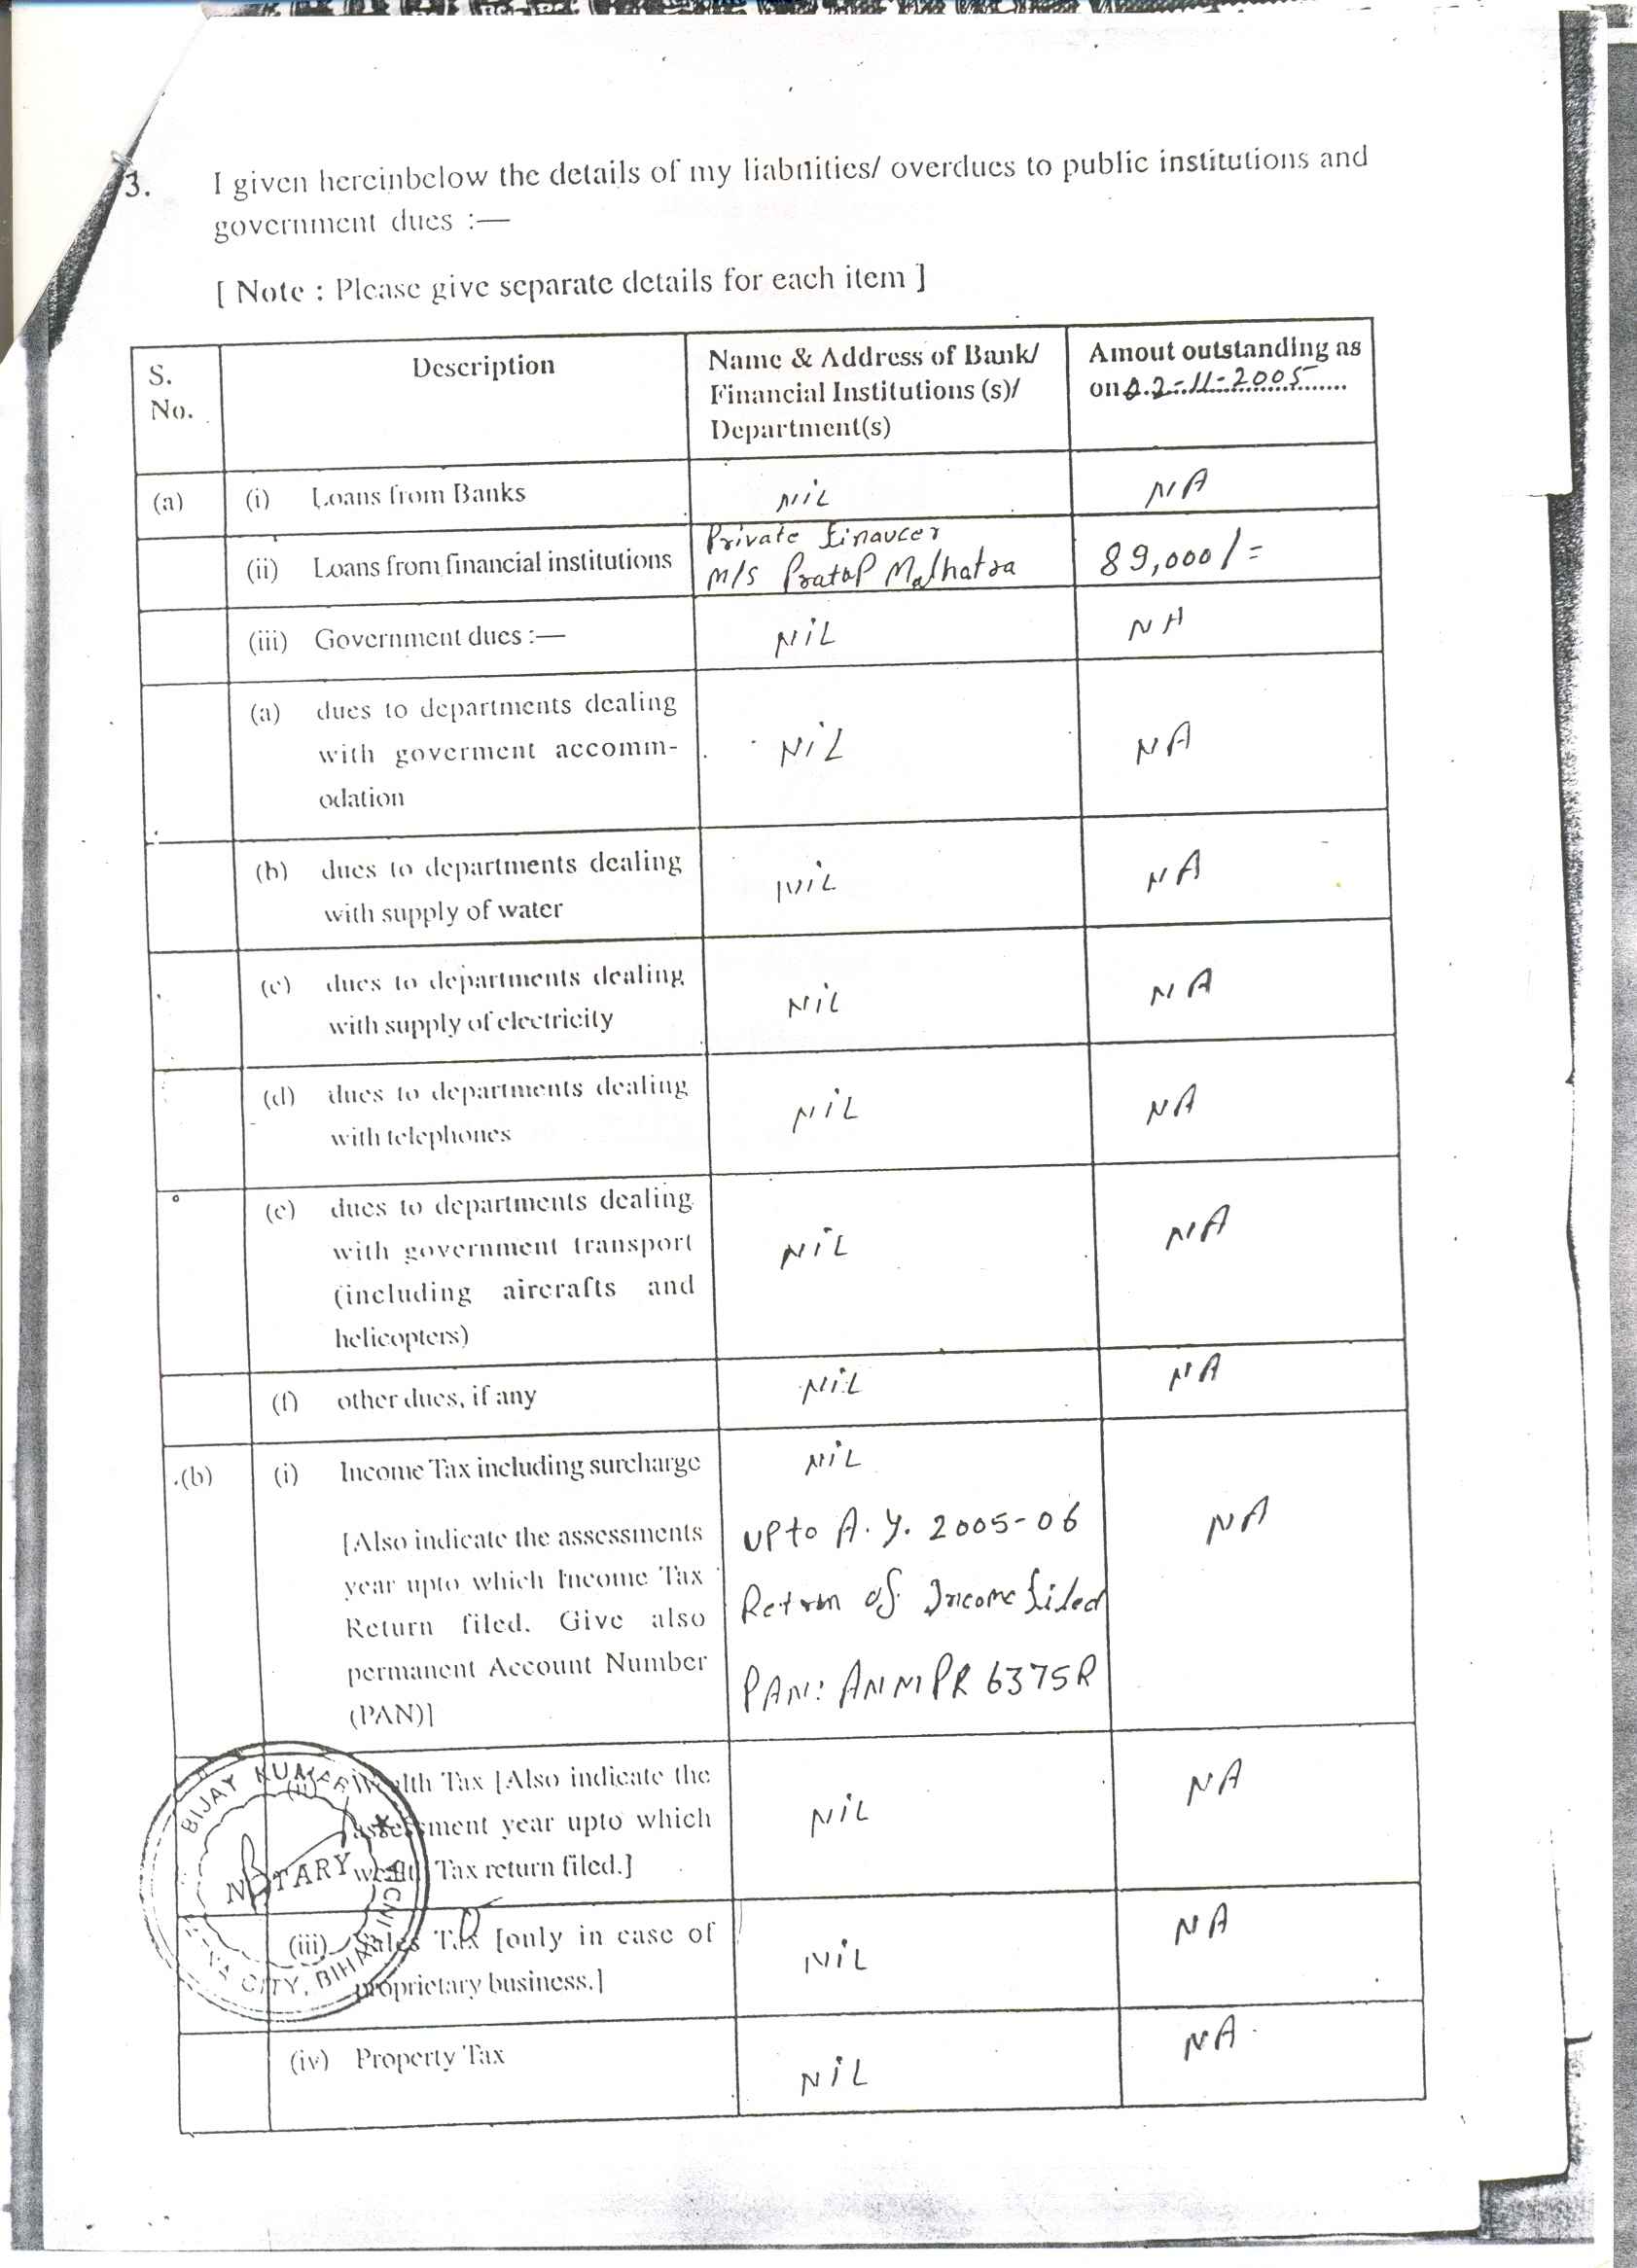 3. I given hereinbelow the details of my liabilities/ overdues to public institutions and
government dues :—
[ Note : Please give separate details for each item ]
S.
No.
Description
Name & Address of Bank/
Financial Institutions (s)/
Department(s)
Amout outstanding as
on 02-11-2005
(a) (i) Loans from Banks NiL NA
(ii) Loans from financial institutions
Private Financer
M/S Pratap Malhatra
89,000/=
(iii) Government dues :— NiL NA
(a) dues to departments dealing
with goverment accomm-
odation
NiL NA
(b) dues to departments dealing
with supply of water
NiL NA
(c) dues to departments dealing
with supply of electricity
NiL NA
(d) dues to departments dealing
with telephones
NiL NA
(e) dues to departments dealing
with government transport
(including aircrafts and
helicopters)
NiL NA
(f) other dues, if any NiL NA
(b) (i) Income Tax including surcharge
[Also indicate the assessments
year upto which Income Tax
Return filed. Give also
permanent Account Number
(PAN)]
NiL
upto A.Y. 2005-06
Return of Income filed
PAN: ANMPR 6375R
NA
(ii) Wealth Tax [Also indicate the
assessment year upto which
wealth Tax return filed.]
NiL NA
(iii) Sales Tax [only in case of
proprietary business.]
NiL NA
(iv) Property Tax NiL NA
BIJAY KUMAR
NOTARY
CITY, BIHAR